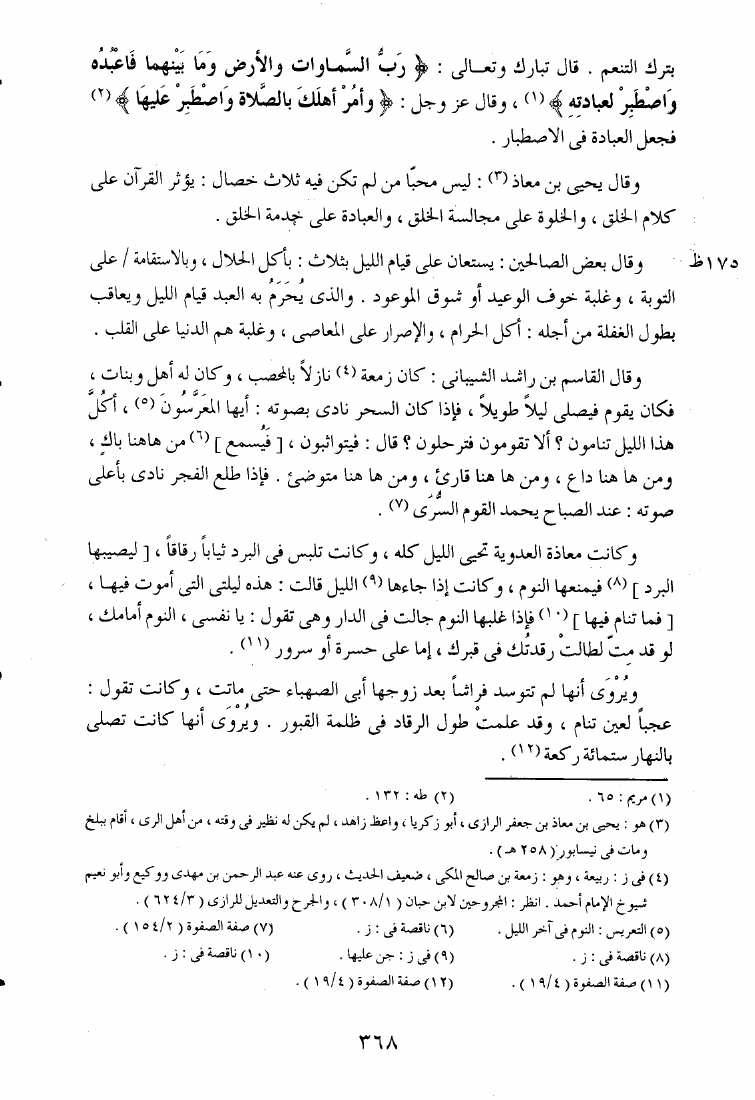 بترك التنعم . قال تبارك وتعـالى : ﴿ رَبُّ السَّمـاوات والأرض وَمَا بَيْنهما فَاعْبُدْهُ
وَاصْطَبِرْ لعبادته ﴾ (١) ، وقال عز وجل : ﴿ وأمُرْ أهلَكَ بالصَّلاة وَاصْطَبِرْ عَليهَا ﴾ (٢)
فجعل العبادة فى الاصطبار .
وقال يحيى بن معاذ (٣) : ليس محبّا من لم تكن فيه ثلاث خصال : يؤثر القرآن على
كلام الخلق ، والخلوة على مجالسة الخلق ، والعبادة على خدمة الخلق .
١٧٥ظ وقال بعض الصالحين : يستعان على قيام الليل بثلاث : بأكل الحلال ، وبالاستقامة / على
التوبة ، وغلبة خوف الوعيد أو شوق الموعود . والذى يُحَرَمُ به العبد قيام الليل ويعاقب
بطول الغفلة من أجله : أكل الحرام ، والإصرار على المعاصى ، وغلبة هم الدنيا على القلب .
وقال القاسم بن راشد الشيبانى : كان زمعة (٤) نازلاً بالمحصب ، وكان له أهل وبنات ،
فكان يقوم فيصلى ليلاً طويلاً ، فإذا كان السحر نادى بصوته : أيها المعَرَّسُونَ (٥) ، أكُلَّ
هذا الليل تنامون ؟ ألا تقومون فترحلون ؟ قال : فيتواثبون ، [ فَيُسمع ] (٦) من هاهنا باكٍ ،
ومن ها هنا داع ، ومن ها هنا قارئ ، ومن ها هنا متوضئ . فإذا طلع الفجر نادى بأعلى
صوته : عند الصباح يحمد القوم السُّرَى (٧) .
وكانت معاذة العدوية تحيى الليل كله ، وكانت تلبس فى البرد ثياباً رقاقاً ، [ ليصيبها
البرد ] (٨) فيمنعها النوم ، وكانت إذا جاءها (٩) الليل قالت : هذه ليلتى التى أموت فيهـا ،
[ فما تنام فيها ] (١٠) فإذا غلبها النوم جالت فى الدار وهى تقول : يا نفسى ، النوم أمامك ،
لو قد متّ لطالتْ رقدتُك فى قبرك ، إما على حسرة أو سرور (١١) .
ويُرْوَى أنها لم تتوسد فراشاً بعد زوجها أبى الصهباء حتى ماتت ، وكانت تقول :
عجباً لعين تنام ، وقد علمتْ طول الرقاد فى ظلمة القبور . ويُرْوَى أنها كانت تصلى
بالنهار ستمائة ركعة (١٢) .
(١) مريم : ٦٥ . (٢) طه : ١٣٢ .
(٣) هو : يحيى بن معاذ بن جعفر الرازى ، أبو زكريا ، واعظ زاهد ، لم يكن له نظير فى وقته ، من أهل الرى ، أقام ببلخ
ومات فى نيسابور ( ٢٥٨ هـ ) .
(٤) فى ز : ربيعة ، وهو : زمعة بن صالح المكى ، ضعيف الحديث ، روى عنه عبد الرحمن بن مهدى ووكيع وأبو نعيم
شيوخ الإمام أحمد . انظر : المجروحين لابن حبان ( ٣٠٨/١ ) ، والجرح والتعديل للرازى ( ٦٢٤/٣ ) .
(٥) التعريس : النوم فى آخر الليل . (٦) ناقصة فى : ز . (٧) صفة الصفوة ( ١٥٤/٢ ) .
(٨) ناقصة فى : ز . (٩) فى ز : جن عليها . (١٠) ناقصة فى : ز .
(١١) صفة الصفوة ( ١٩/٤ ) . (١٢) صفة الصفوة ( ١٩/٤ ) .
٣٦٨